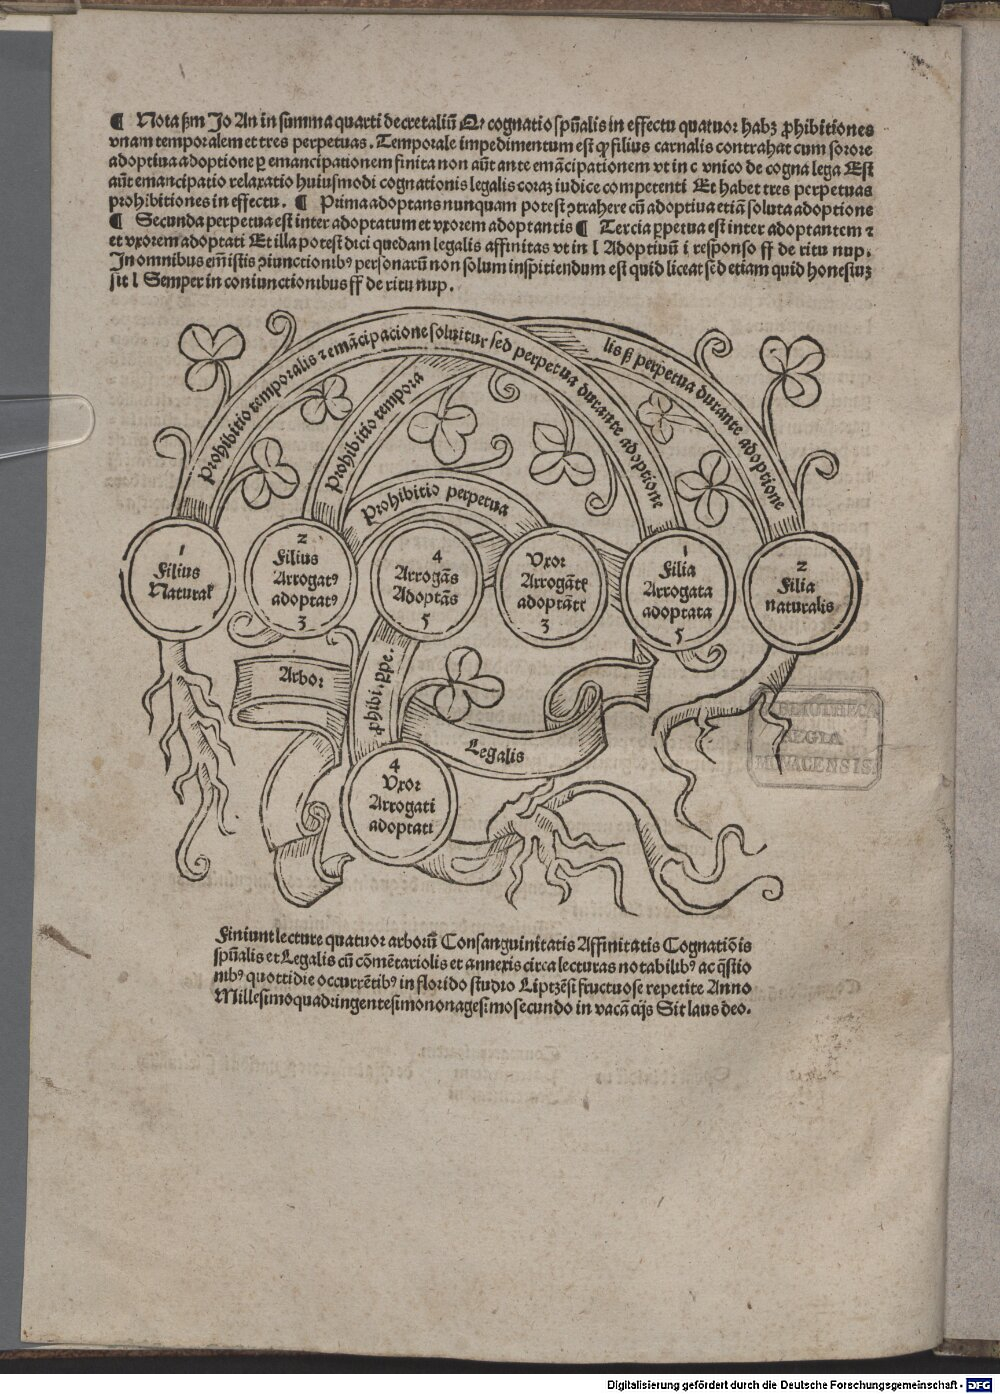 ¶ Nota ßm Jo An in summa quarti decretaliū Qꝛ cognatio spūalis in effectu quatuor habꝫ ꝓhibitiones
vnam temporalem et tres perpetuas. Temporale impedimentum est qꝫ filius carnalis contrahat cum sorore
adoptiua adoptione ꝑ emancipationem finita non aūt ante emācipationem vt in c vnico de cogna lega Est
aūt emancipatio relaxatio huiusmodi cognationis legalis coraꝫ iudice competenti Et habet tres perpetuas
prohibitiones in effectu. ¶ Prima adoptans nunquam potest ꝯtrahere cū adoptiua etiā soluta adoptione
¶ Secunda perpetua est inter adoptatum et vxorem adoptantis ¶ Tercia ꝑpetua est inter adoptantem ⁊
et vxorem adoptati Et illa potest dici quedam legalis affinitas vt in l Adoptiuū i responso ff de ritu nup.
In omnibus em̄ istis ꝯiunctionibꝰ personarū non solum inspitiendum est quid liceat sed etiam quid honestuꝫ
sit l Semper in coniunctionibus ff de ritu nup.
Prohibitio temporalis ⁊ emācipacione soluitur sed perpetua durante adoptione
Prohibitio tempora
lis ß perpetua durante adoptione
Prohibitio perpetua
1
Filius
Natural
2
Filius
Arrogatꝰ
adoptatꝰ
3
4
Arrogās
Adoptās
5
Vxor
Arrogāte
adoptāte
3
1
Filia
Arrogata
adoptata
5
2
Filia
naturalis
Arbor
ꝓhibi. ꝑpe.
Legalis
4
Vxor
Arrogati
adoptati
BIBLIOTHECA
REGIA
MONACENSIS.
Finiunt lecture quatuor arborū Consanguinitatis Affinitatis Cognatiōis
spūalis et Legalis cū cōmētariolis et annexis circa lecturas notabilibꝰ ac q̄stio
nibꝰ quottidie occurrētibꝰ in florido studio Liptzēsi fructuose repetite Anno
Millesimoquadringentesimononagesimosecundo in vacācijs Sit laus deo.
Digitalisierung gefördert durch die Deutsche Forschungsgemeinschaft - DFG